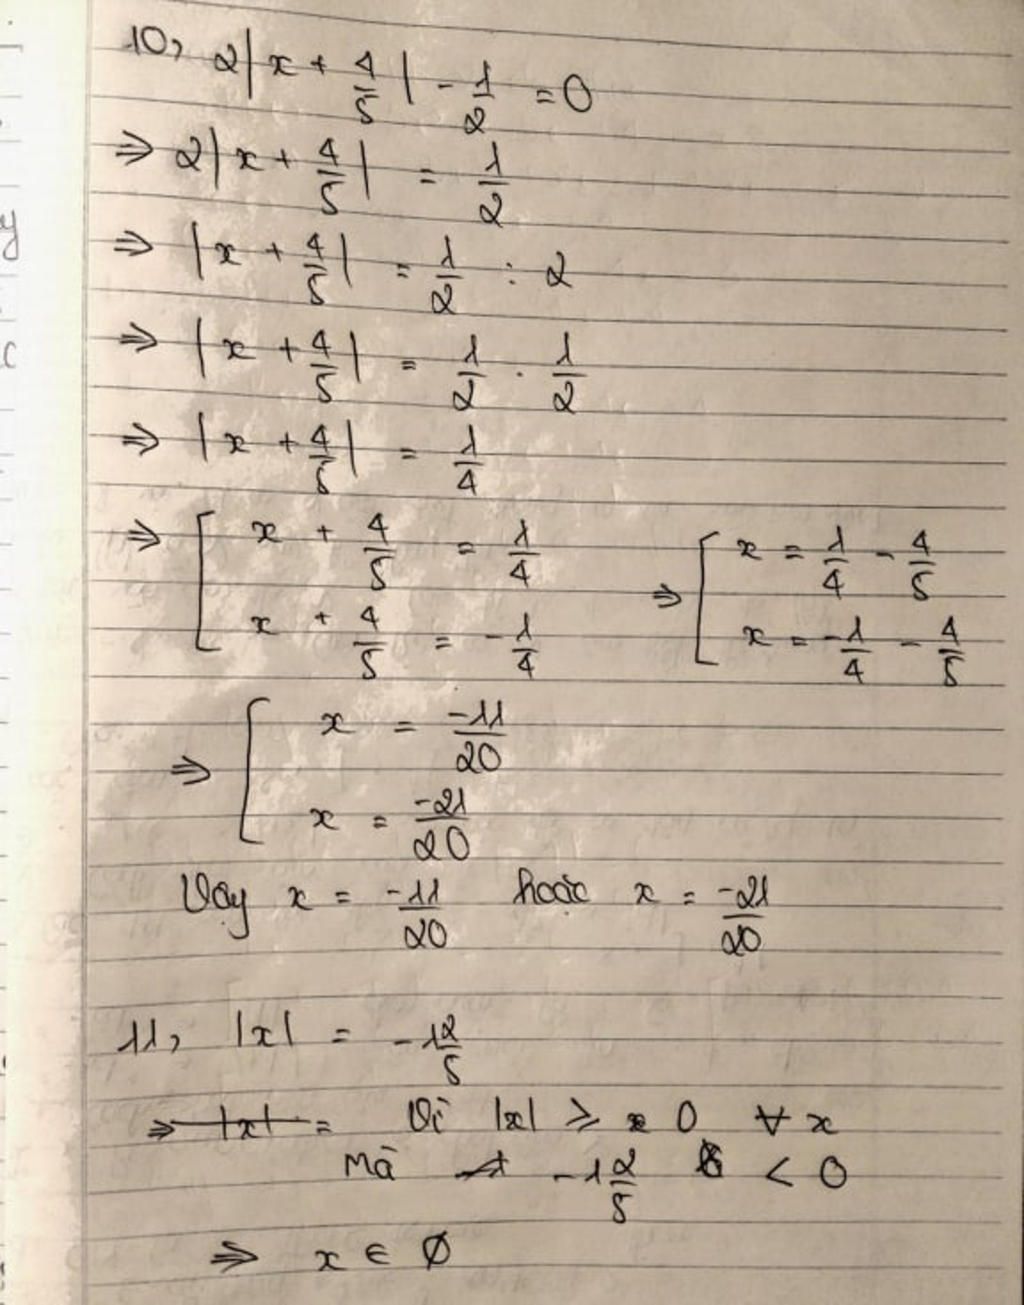 10, 2|x + 4/5| - 1/2 = 0
⇒ 2|x + 4/5| = 1/2
⇒ |x + 4/5| = 1/2 : 2
⇒ |x + 4/5| = 1/2 . 1/2
⇒ |x + 4/5| = 1/4
⇒ [ x + 4/5 = 1/4 ⇒ [ x = 1/4 - 4/5
x + 4/5 = -1/4 x = -1/4 - 4/5
⇒ [ x = -11/20
x = -21/20
Vậy x = -11/20 hoặc x = -21/20
11, |x| = -1 2/5
⇒ |x| = Vì |x| ≥ 0 ∀ x
Mà -1 2/5 < 0
⇒ x ∈ Ø